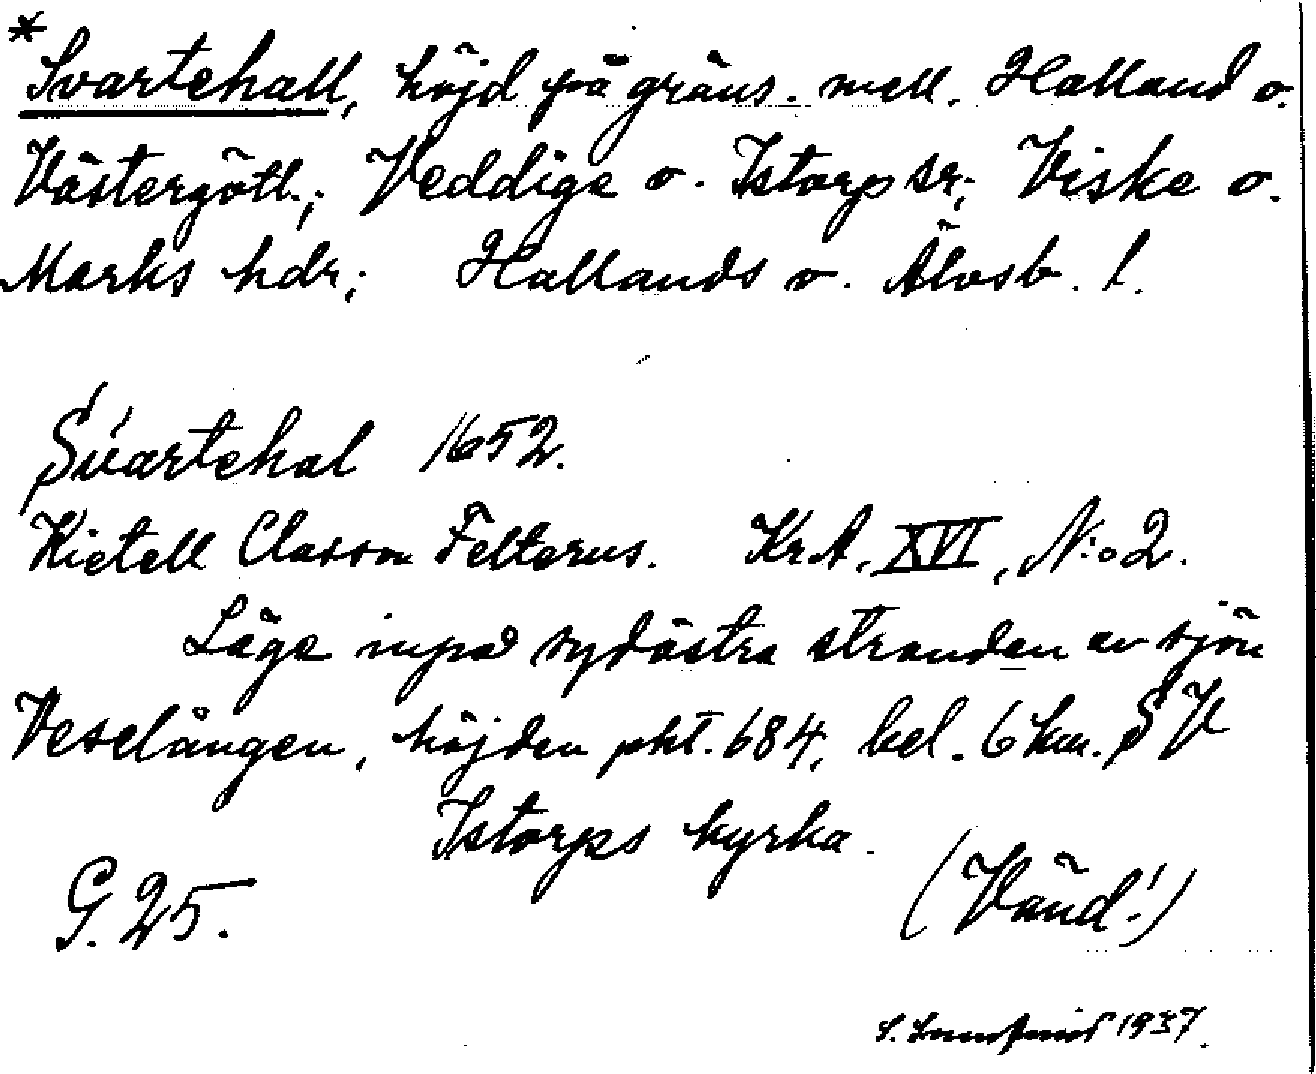 *Svartehall, höjd på gräns. mell. Halland o.
Västergötl.; Veddige o. Istorp sr; Viske o.
Marks hdr; Hallands o. Älvsb. l.
Svartehal 1652.
Kietell Classon Felterus. KrA, XVI, N:o 2.
Läge invid sydöstra stranden av sjön
Veselången, höjden pkt. 684, bel. 6 km. SV
Istorps kyrka.
(Vänd!)
G. 25.
S. 1937.